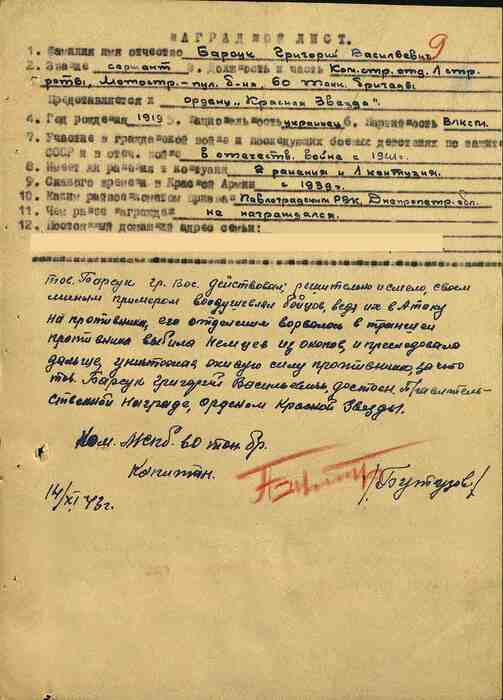 9
НАГРАДНОЙ ЛИСТ.
1. Фамилия имя отчество Барсук Григорий Васильевич
2. Звание сержант 3. Должность и часть Ком. стр. отд. 1 стр.
роты, Мотостр.-пул. б-на, 60 танк. бригады
Представляется к ордену "Красная Звезда".
4. Год рождения 1919 5. Национальность украинец 6. Партийность ВЛКСМ.
7. Участие в гражданской войне и последующих боевых действиях по защите
СССР и в отеч. войне в отечеств. война с 1941 г.
8. Имеет ли ранения и контузии 2 ранения и 1 контузия.
9. Скакого времени в Красной Армии с 1939 г.
10. Каким райвоенкоматом призван Павлоградским РВК, Днепропетр. обл.
11. Чем ранее награжден не награждался.
12. Постоянный домашний адрес семьи:
тов. Барсук гр. Вас. действовал решительно и смело, своим
личным примером воодушевлял бойцов, ведя их в Атаку
на противника, его отделение ворвалось в траншеи
противника выбила Немцев из окопов, и преследовала
дальше, уничтожая живую силу противника, за что
тов. Барсук Григорий Васильевич достоен, Правитель-
ственной Награде, Орденом Красной Звезды.
Ком. МСПБ. 60 тан. бр.
Капитан.
/Бутузов/
14/XI 43г.